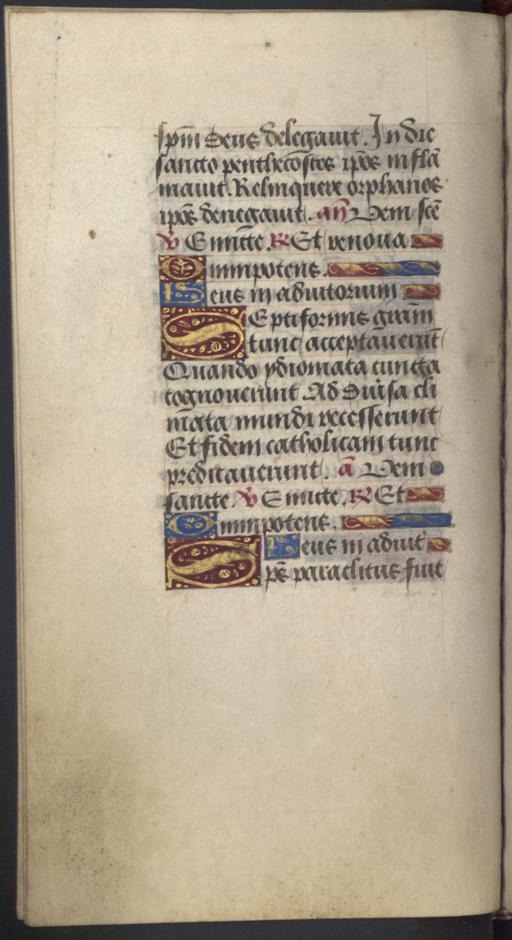 spm̄ deus delegavit. In die
sancto penthecostes ip̄os inflā
mavit Relinquere orphanos
ip̄os denegavit. an̄ Veni scē
℣ Emitte. ℟ Et renova
Omnipotens.
Deus in adiutorium
Septiformis grām
tunc acceptaverūt
Quando ydiomata cuncta
cognoverunt Ad diūsa cli
mata mundi recesserunt
Et fidem catholicam tunc
predicaverunt. ā Veni
sancte ℣ Emitte. ℟ Et
Omnipotens.
Deus in adiut
Spūs paraclitus fuit